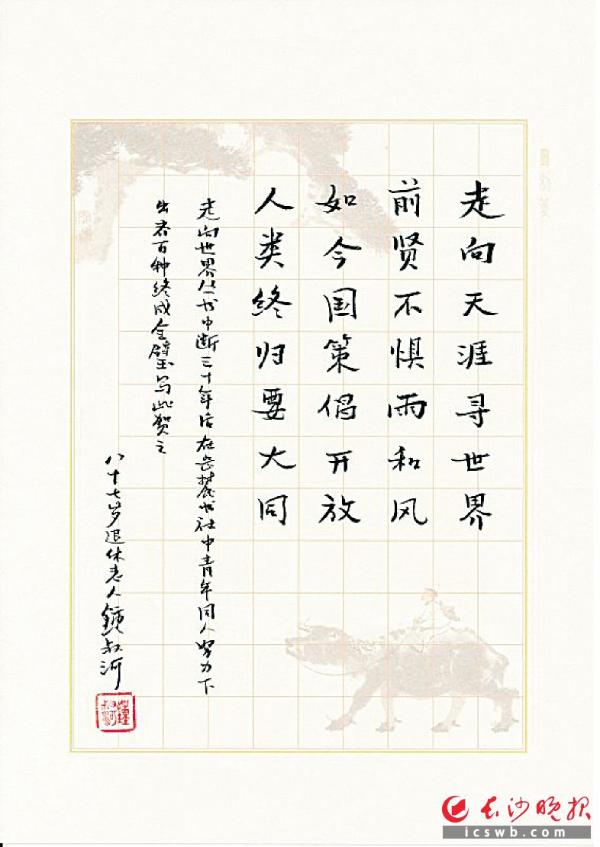 走向天涯寻世界
前贤不惧雨和风
如今国策倡开放
人类终归要大同
走向世界丛书中断三十年后在岳麓书社中青年同人努力下
出齐百种终成全璧写此贺之
八十七岁退休老人锺叔河
长沙晚报
icswb.com